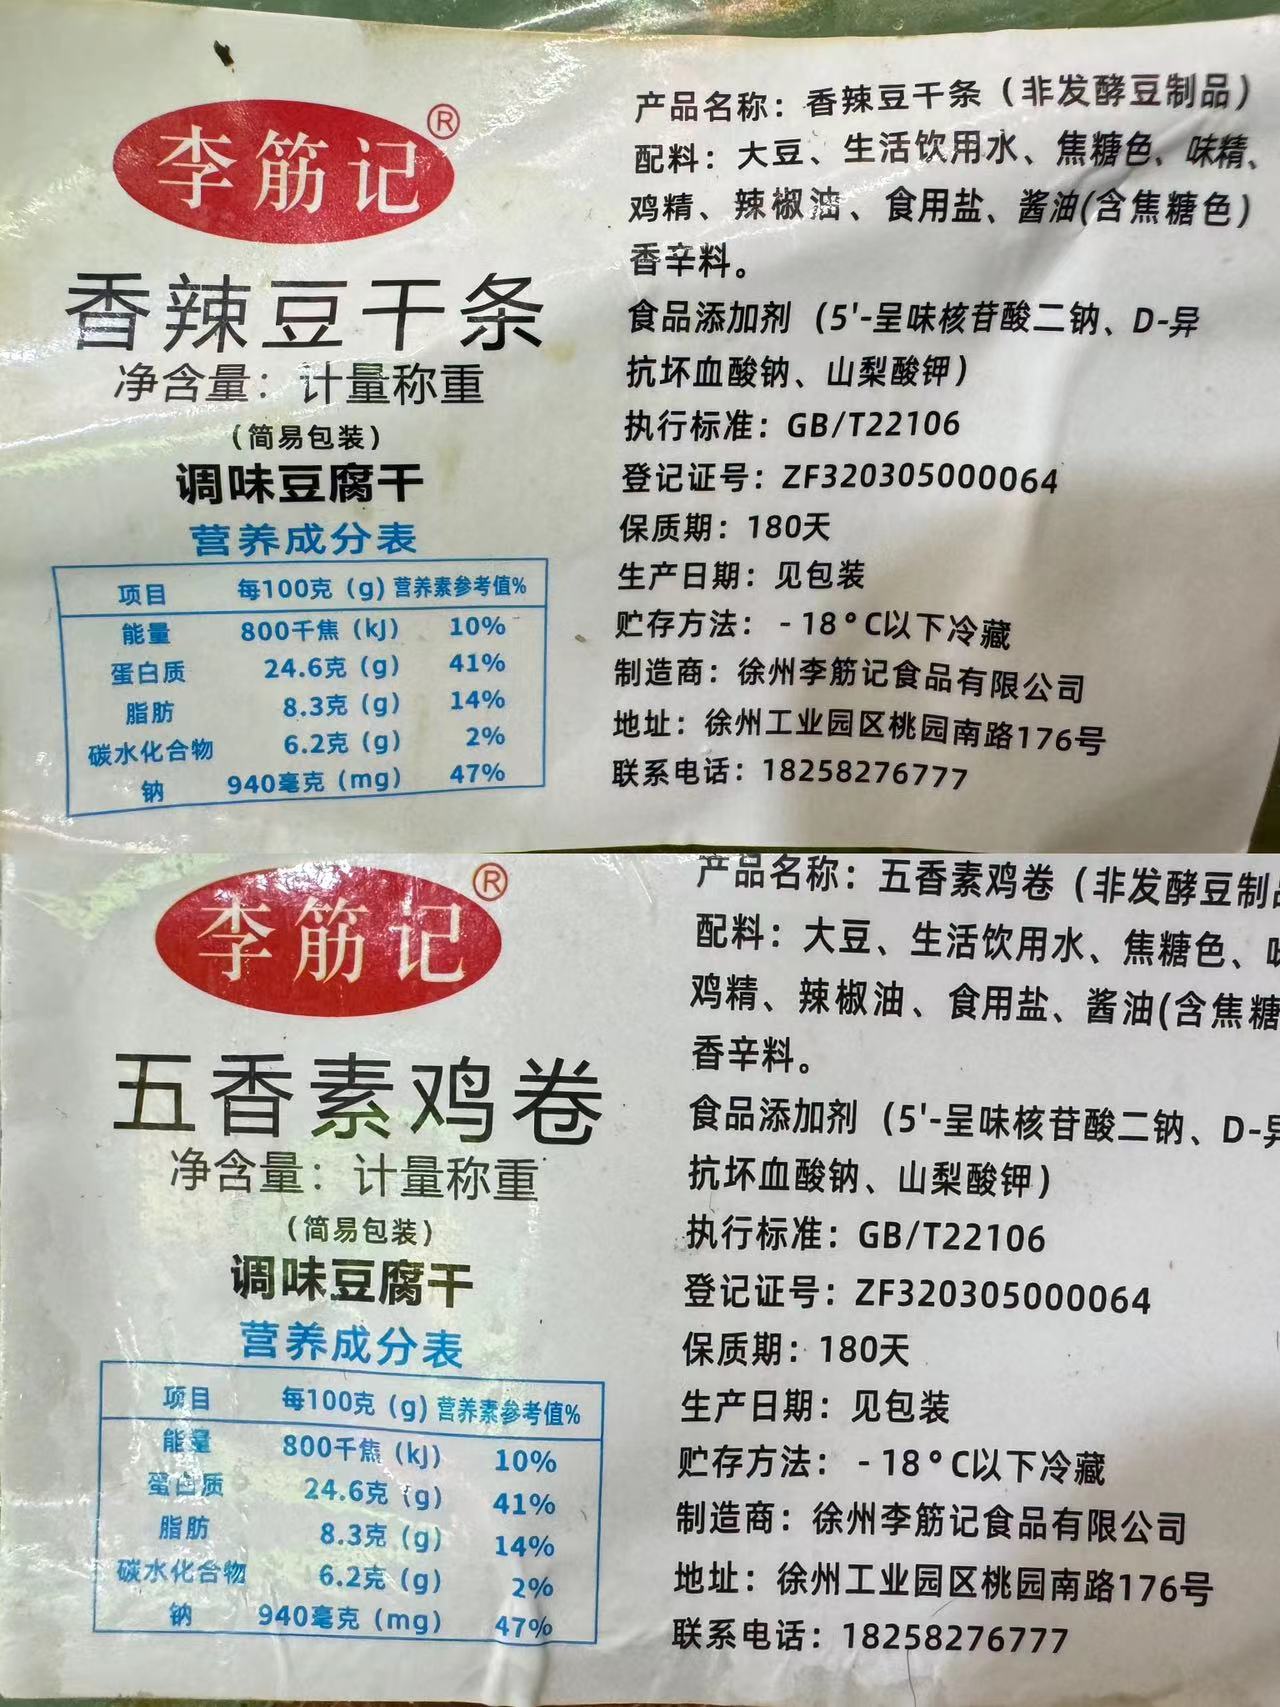 李筋记®
香辣豆干条
净含量：计量称重
（简易包装）
调味豆腐干
营养成分表
项目 每100克（g） 营养素参考值%
能量 800千焦（kJ） 10%
蛋白质 24.6克（g） 41%
脂肪 8.3克（g） 14%
碳水化合物 6.2克（g） 2%
钠 940毫克（mg） 47%
产品名称：香辣豆干条（非发酵豆制品）
配料：大豆、生活饮用水、焦糖色、味精、
鸡精、辣椒油、食用盐、酱油(含焦糖色)
香辛料。
食品添加剂（5'-呈味核苷酸二钠、D-异
抗坏血酸钠、山梨酸钾）
执行标准：GB/T22106
登记证号：ZF320305000064
保质期：180天
生产日期：见包装
贮存方法：-18°C以下冷藏
制造商：徐州李筋记食品有限公司
地址：徐州工业园区桃园南路176号
联系电话：18258276777
李筋记®
五香素鸡卷
净含量：计量称重
（简易包装）
调味豆腐干
营养成分表
项目 每100克（g） 营养素参考值%
能量 800千焦（kJ） 10%
蛋白质 24.6克（g） 41%
脂肪 8.3克（g） 14%
碳水化合物 6.2克（g） 2%
钠 940毫克（mg） 47%
产品名称：五香素鸡卷（非发酵豆制
配料：大豆、生活饮用水、焦糖色、
鸡精、辣椒油、食用盐、酱油(含焦糖
香辛料。
食品添加剂（5'-呈味核苷酸二钠、D-异
抗坏血酸钠、山梨酸钾）
执行标准：GB/T22106
登记证号：ZF320305000064
保质期：180天
生产日期：见包装
贮存方法：-18°C以下冷藏
制造商：徐州李筋记食品有限公司
地址：徐州工业园区桃园南路176号
联系电话：18258276777